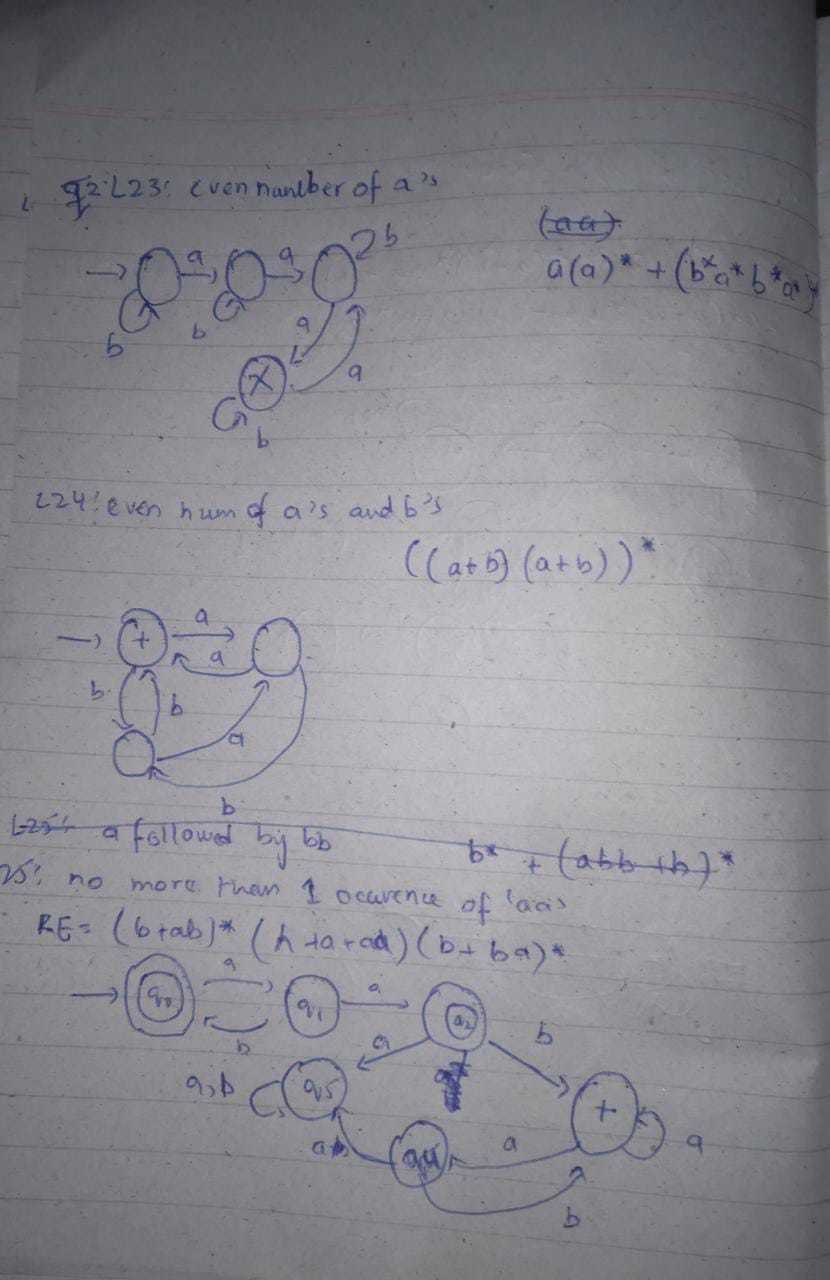 q2. L23: even number of a's
(aa)
a(a)* + (b*a* b*a*)*
a a b
b b
a a
X
b
L24: even num of a's and b's
((a+b) (a+b))*
+ a
a
b b a
b
L25: a followed by bb b* + (abb+b)*
25: no more than 1 ocurence of 'aa'
RE = (b+ab)* (Λ+a+aa) (b+ba)*
q0 a q1 a q2
b a b
a,b q5
+ a
a q4 a
b